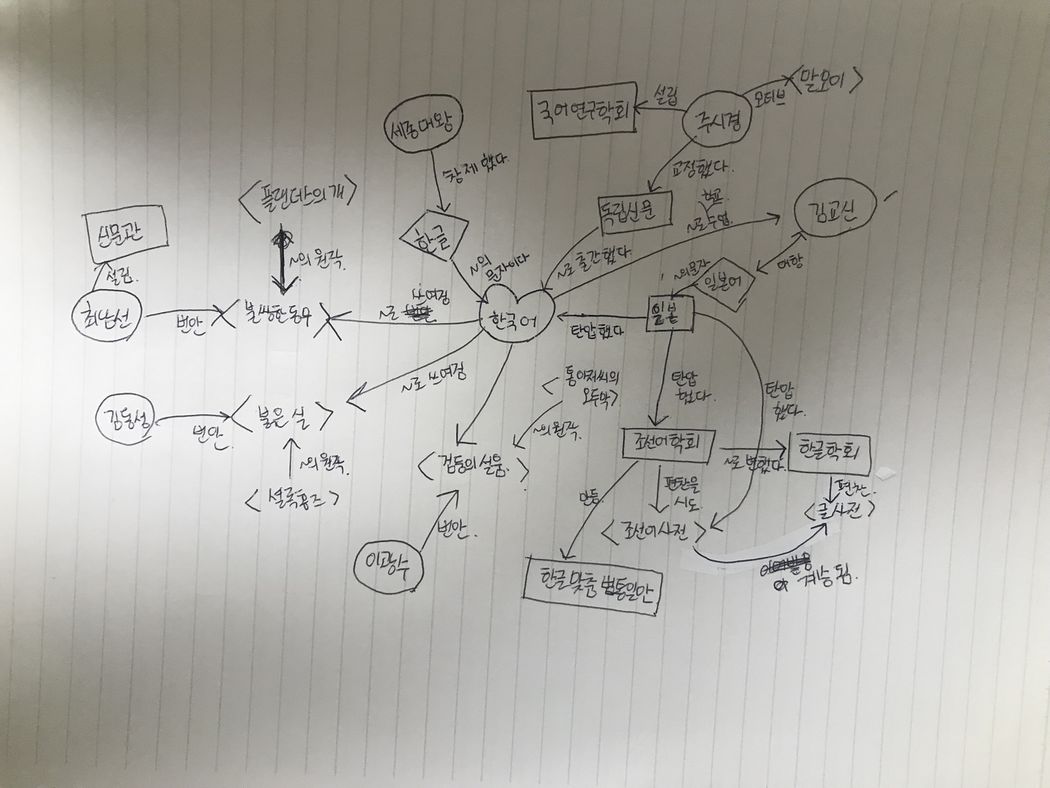 국어연구학회
설립
주시경
모티브
<말모이>
세종대왕
창제했다.
교정했다.
<플랜더스의 개>
독립신문
~로 수업
김교신
신문관
한글
~의 원작.
~의
문자이다
~로 출간했다.
~의 문자
일본어
저항
설립.
최남선
번안
불쌍한 동무
~로
쓰여짐
한국어
탄압했다
일본
~로 쓰여짐
<통아저씨의
오두막>
탄압
했다.
탄압
했다.
김동성
번안.
<붉은 실>
~의 원작.
~의 원작.
<검둥의 설움.>
조선어학회
~로 변했다.
한글학회
<셜록홈즈>
만듦
편찬을
시도
편찬.
<큰사전>
번안.
<조선어사전>
이광수
한글 맞춤법통일안
계승됨.